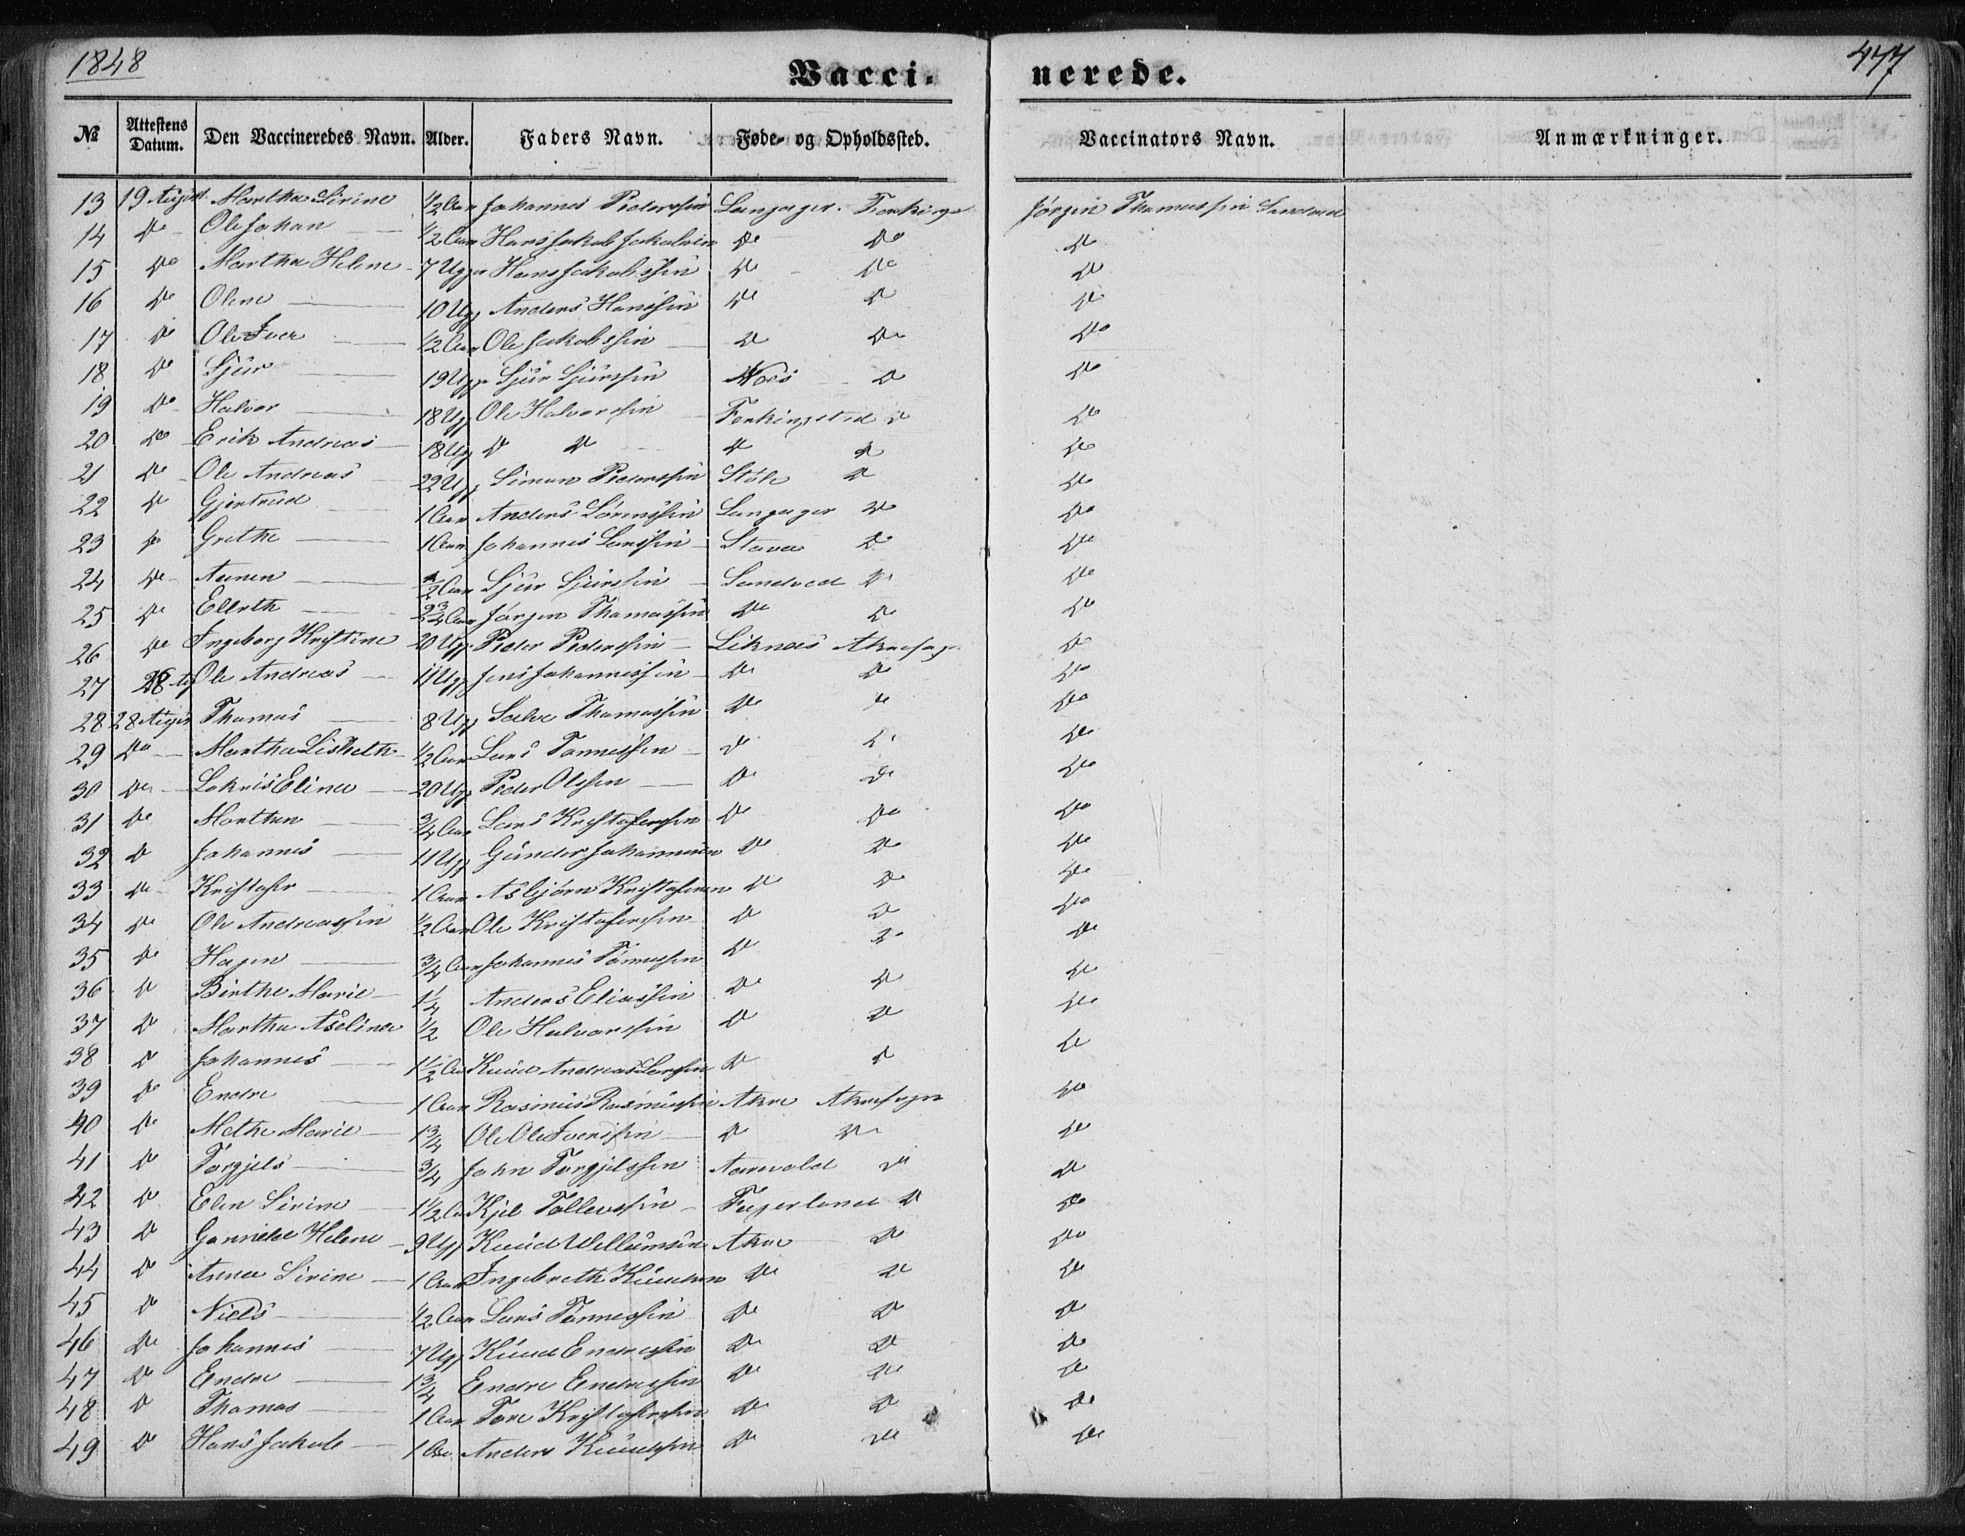 1848
477
Vacci- nerede.
№ Attestens Datum. Den Vaccineredes Navn. Alder. Faders Navn. Føde- og Opholdssted. Vaccinators Navn. Anmærkninger.
13 19 August Martha Sirine 1/2 Aar Johannes Pederssen Langager Jørgen Thamassen Sandved
14 Do Ole Johan 1/2 Aar Hans Jakob Do Do Do
15 Do Martha Helene 7 Uger Hans Jakobssen Do Do Do
16 Do Olene 10 Ug Anders Hanssen Do Do Do
17 Do Ole Iver 1/2 Aar Ole Jakobssen Do Do Do
18 Do Sjur 19 Ug Sjur Sjurssen Næs Do Do
19 Do Halvor 18 Ug Ole Halvorssen Ferkingstad Do Do
20 Do Erik Andreas 18 Ug Do Do Do Do Do
21 Do Ole Andreas 22 Ug Simon Pederssen Støle Do Do
22 Do Gjertrud 1 Aar Anders Sørenssen Langager Do Do
23 Do Grethe 1 Aar Johannes Larssen Stava Do Do
24 Do Aanen 1/2 Aar Sjur Sjurssen Sandved Do Do
25 Do Ellerth 2 3/4 Aar Jørgen Thamassen Do Do Do
26 Do Ingeborg Kristine 20 Ug Peder Pederssen Liknæs Do
27 28 Ag Ole Andreas 11 Ug Jens Johannessen Do Do Do
28 28 August Thamas 8 Ug Salve Thamassen Do Do Do
29 Do Martha Lisbeth 1/2 Aar Lars Tønnessen Do Do Do
30 Do Elina 20 Ug Peder Olssen Do Do Do
31 Do Morthen 3/4 Aar Lars Kristoferssen Do Do Do
32 Do Johannes 11 Ug Gunder Johannessen Do Do Do
33 Do Kristofer 1 Aar Asbjørn Kristofersen Do Do Do
34 Do Ole Andreassen 1/2 Aar Ole Kristoferssen Do Do Do
35 Do Hagen 3/4 Aar Johannes Tønnessen Do Do Do
36 Do Birthe Marie 1 1/4 Anders Eliassen Do Do Do
37 Do Martha Aseline 1/2 Ole Halvorssen Do Do Do
38 Do Johannes 1 1/2 Aa Knud Andreas Larssen Do Do Do
39 Do Endre 1 Aar Rasmus Rasmussen Akre Do
40 Do Methe Marie 1 3/4 Ole Ole Iverssen Do Do Do
41 Do Torgjels 3/4 John Torgjelssen Do Do
42 Do Elen Sirine 1 1/2 Aa Kjel Tollevssen Fagerland Do Do
43 Do Gunnild Helene 9 Ug Knud Willumsen Akre Do Do
44 Do Anna Sirine 1 Aar Ingebreth Knudsen Do Do Do
45 Do Niels 1/2 Aar Lars Tønnessen Do Do Do
46 Do Johannes 7 Ug Knud Endressen Do Do Do
47 Do Endre 1 3/4 Endre Endressen Do Do Do
48 Do Thamas 1 Aar Tore Kristoferssen Do Do Do
49 Do Hans Jakob 1 Aa Anders Knudssen Do Do Do